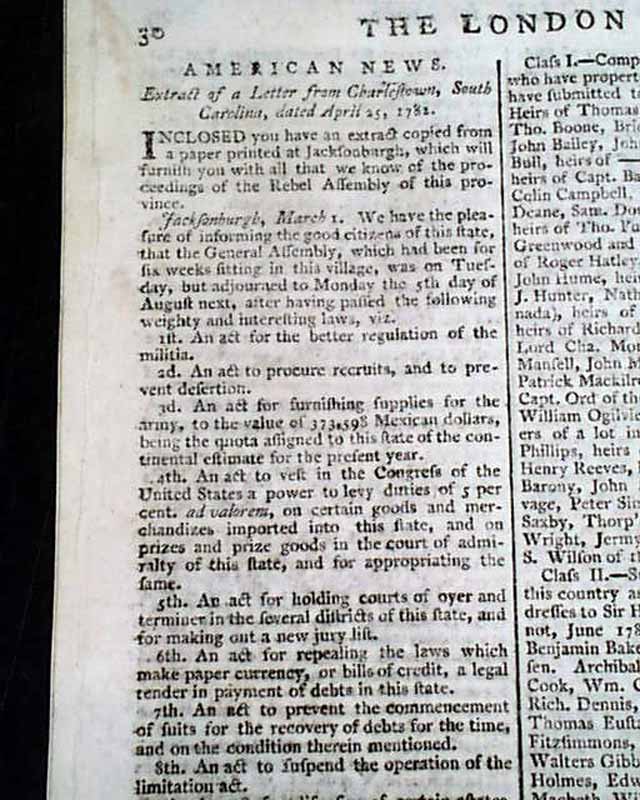 30
THE LONDON
AMERICAN NEWS.
Extract of a Letter from Charlestown, South
Carolina, dated April 25, 1782.
INCLOSED you have an extract copied from
a paper printed at Jacksonburgh, which will
furnish you with all that we know of the pro-
ceedings of the Rebel Assembly of this pro-
vince.
Jacksonburgh, March 1. We have the plea-
sure of informing the good citizens of this state,
that the General Assembly, which had been for
six weeks sitting in this village, was on Tues-
day, but adjourned to Monday the 5th day of
August next, after having passed the following
weighty and interesting laws, viz.
1st. An act for the better regulation of the
militia.
2d. An act to procure recruits, and to pre-
vent desertion.
3d. An act for furnishing supplies for the
army, to the value of 373,598 Mexican dollars,
being the quota assigned to this state of the con-
tinental estimate for the present year.
4th. An act to vest in the Congress of the
United States a power to levy duties of 5 per
cent. ad valorem, on certain goods and mer-
chandizes imported into this state, and on
prizes and prize goods in the court of admi-
ralty of this state, and for appropriating the
same.
5th. An act for holding courts of oyer and
terminer in the several districts of this state, and
for making out a new jury list.
6th. An act for repealing the laws which
make paper currency, or bills of credit, a legal
tender in payment of debts in this state.
7th. An act to prevent the commencement
of suits for the recovery of debts for the time,
and on the condition therein mentioned.
8th. An act to suspend the operation of the
limitation act.
Class I.—Comp
who have propert
have submitted t
Heirs of Thomas
Tho. Boone, Bri
John Bailey, Joh
Bull, heirs of —
heirs of Capt. Ba
Colin Campbell,
Deane, Sam. Do
heirs of Tho. Fu
Greenwood and
of Roger Hatley
John Hume, hei
J. Hunter, Nath
nada), heirs of
heirs of Richard
Lord Cha. Mon
Mansell, John M
Patrick Mackilr
Capt. Ord of the
William Ogilvie
ers of a lot in
Phillips, heirs
Henry Reeves,
Barony, John
vage, Peter Sin
Saxby, Thorp'
Wright, Jermy
S. Wilson of th
Class II.—S
this country a
dresses to Sir H
not, June 178
Benjamin Bake
sen. Archibal
Cook, Wm. C
Rich. Dennis,
Thomas Eust
Fitzsimmons,
Walters Gibb
Holmes, Edw